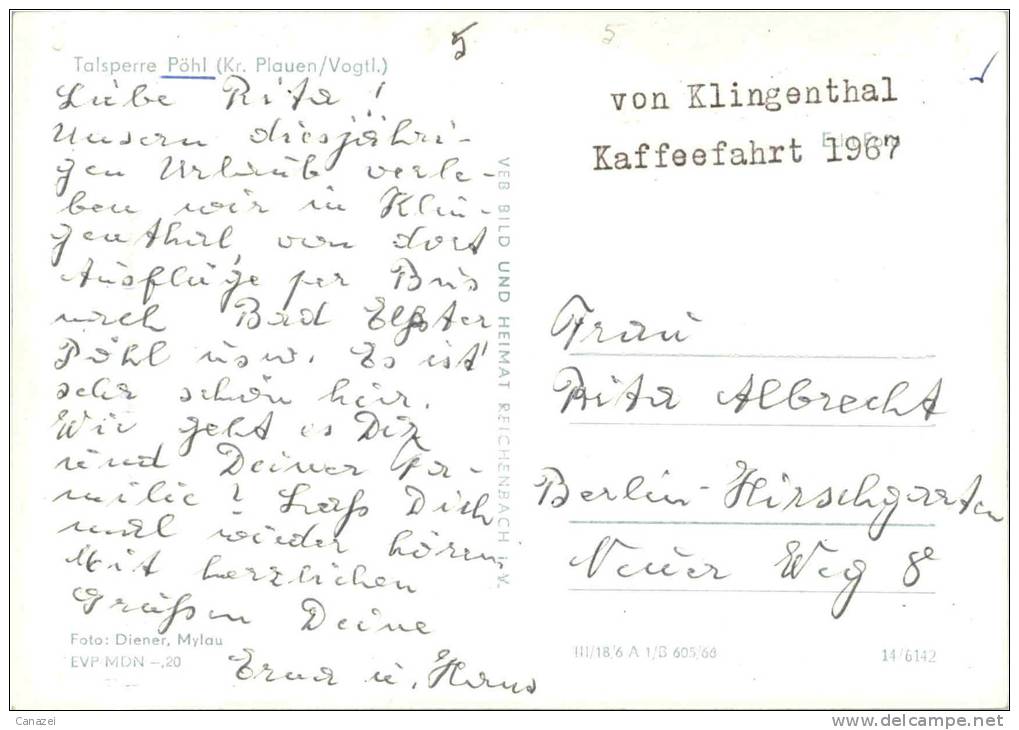 5
5
Talsperre Pöhl (Kr. Plauen/Vogtl.)
Liebe Rita!
Unsern diesjähri-
gen Urlaub verle-
ben wir in Klin-
genthal, von dort
Ausflüge per Bus
nach Bad Elster
Pöhl usw. Es ist
sehr schön hier.
Wie geht es Dir
und Deiner Fa-
milie? Laß Dich
mal wieder hören.
Mit herzlichen
Grüßen Deine
Erna u. Hans
Foto: Diener, Mylau
EVP MDN –,20
VEB BILD UND HEIMAT REICHENBACH i. V.
von Klingenthal
Kaffeefahrt 1967
Frau
Rita Albrecht
Berlin-Hirschgarten
Neuer Weg 8
III/18/6 A 1/B 605/66
14/6142
Canazei
www.delcampe.net